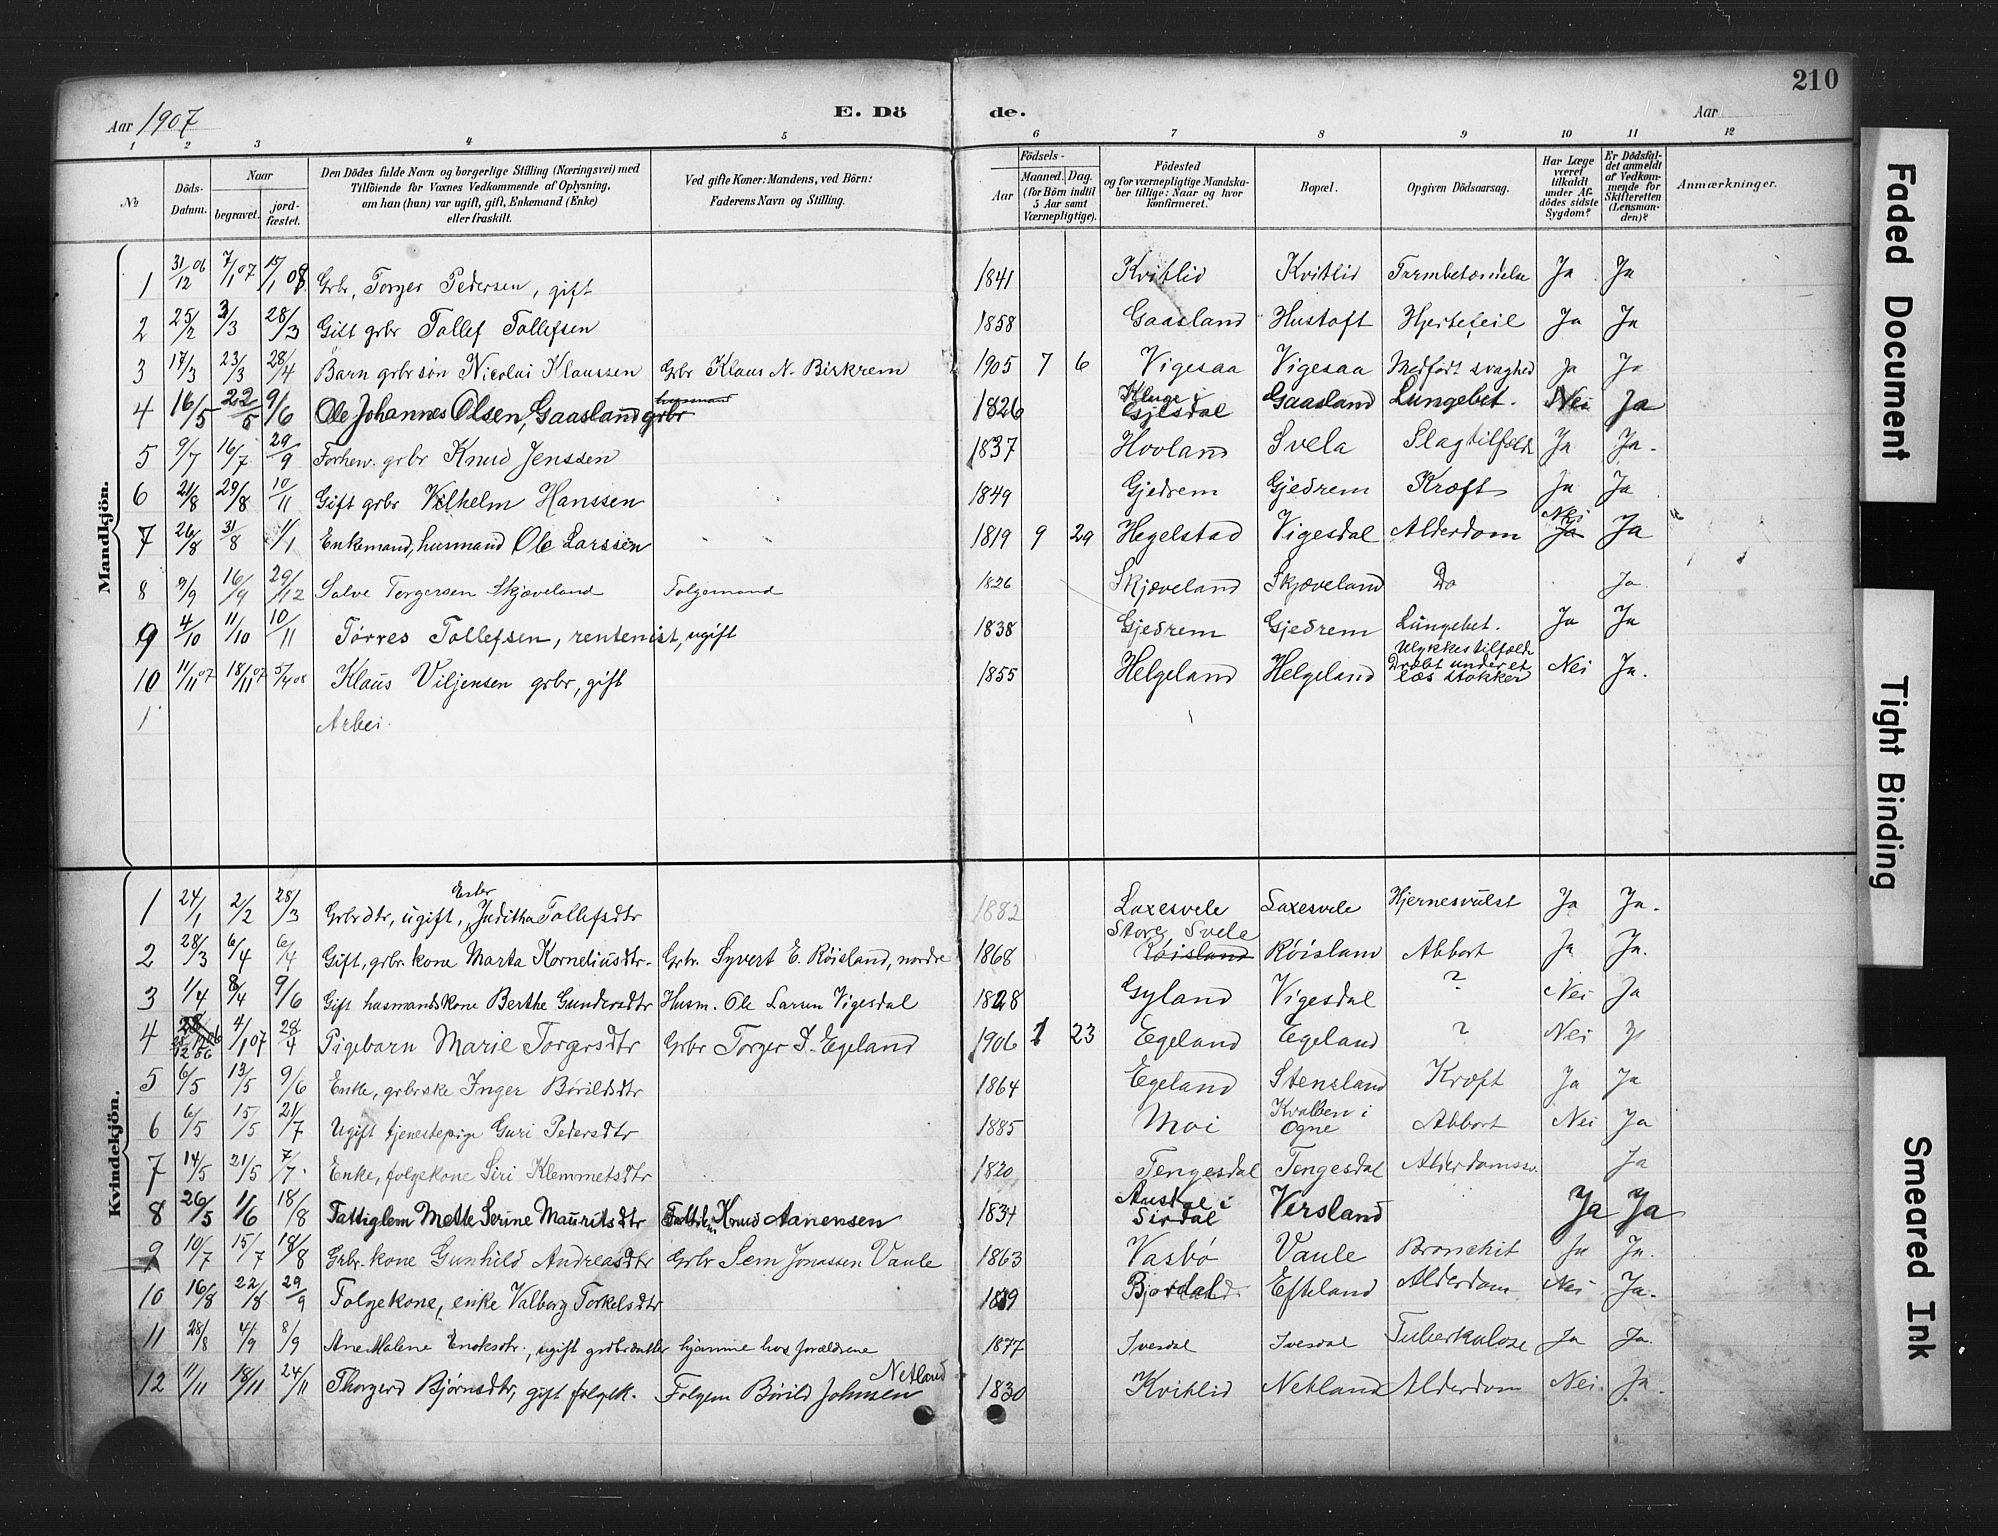 210
Aar 1907 E. Dö de. Aar
1 2 3 4 5 6 7 8 9 10 11 12
No Döds-Datum. Naar begravet. jord-fæstet. Den Dödes fulde Navn og borgerlige Stilling (Næringsvei) med Tilföiende for Voxnes Vedkommende af Oplysning, om han (hun) var ugift, gift, Enkemand (Enke) eller fraskilt. Ved gifte Koner: Mandens, ved Börn: Faderens Navn og Stilling. Födsels- Aar Maaned. Dag. (for Börn indtil 5 Aar samt Værnepligtige). Födested og for værnepligtige Mandskaber tillige: Naar og hvor konfirmeret. Bopæl. Opgiven Dödsaarsag. Har Læge været tilkaldt under Afdödes sidste Sygdom? Er Dödsfaldet anmeldt af Vedkommende for Skifteretten (Lensmanden)? Anmærkninger.
Mandkjön.
1 31/12 06 7/1 07 15/1 08 Grbr, Torger Pedersen, gift 1841 Kvitlid Kvitlid Ja Ja
2 25/2 3/3 28/3 Gift grbr Tollef Tollefsen 1858 Gaasland Hustoft Hjertefeil Ja Ja
3 17/3 23/3 28/4 Barn grbr søn Nicolai Klaussen Grbr Klaus N. Birkrem 1905 7 6 Vigesaa Vigesaa Medfødt svaghed Ja Ja
4 16/5 22/5 9/6 Ole Johannes Olsen, Gaasland husmand grbr 1826 Kluge i Gjesdal Gaasland Lungebet. Nei Ja
5 9/7 16/7 29/9 Forhen. grbr Knud Jenssen 1837 Hovland Svela Slagtilfælde Ja Ja.
6 21/8 29/8 10/11 Gift grbr Vilhelm Hanssen 1849 Gjedrem Gjedrem Kræft Ja Ja
7 26/8 31/8 1/1 Enkemand, husmand Ole Larssen 1819 9 29 Hegelstad Vigesdal Alderdom Nei Ja Ja
8 9/9 16/9 29/12 Salve Torgersen Skjæveland Folgemand 1826 Skjæveland Skjæveland Do Ja
9 4/10 11/10 10/11 Tørres Tollefsen, rentenist, ugift 1838 Gjedrem Gjedrem Lungebet. Ja Ja
10 11/11 07 18/11 07 5/4 08 Klaus Viljensen grbr, gift 1855 Helgeland Helgeland Ulykkestilfælde Dræbt under et læs stokker Nei Ja.
1 Arbei
Kvindekjön.
1 24/1 2/2 28/3 Grbrdtr, ugift, Ester Juditha Tollefsdtr 1882 Laxesvele Laxesvele Hjernesvulst Ja Ja.
2 28/3 6/4 6/4 Gift, grbr. kone Marta Korneliusdtr. Grbr. Syvert E. Røisland, nordre 1868 Store Svele Røisland Røisland Abbort Ja Ja.
3 1/4 8/4 9/6 Gift husmandskone Berthe Gundersdtr Husm. Ole Larsen Vigesdal 1828 Gyland Vigesdal ? Nei Ja
4 4/1 07 28/4 Pigebarn Marie Torgersdtr Grbr Torger J. Egeland 1906 1 23 Egeland Egeland ? Nei Ja
5 6/5 13/5 9/6 Enke, grbrske Inger Børildsdtr 1864 Egeland Stensland Kræft Ja Ja
6 6/5 15/5 21/7 Ugift tjenestepige Guri Pedersdtr 1885 Moi Kvalben i Ogne Abbort Nei Ja
7 14/5 21/5 7/7 Enke, folgekone Siri Klemmetsdtr 1820 Tengesdal Tengesdal Alderdomssv. Ja
8 26/5 1/6 18/8 Fattiglem Mette Serine Mauritsdtr Knud Aanensen 1834 Ausdal i Sirdal Versland Ja Ja
9 10/7 15/7 18/8 Grbr. kone Gunhild Andreasdtr Grbr Sem Jonassen Vaule 1863 Vasbø Vaule Bronchit Ja Ja.
10 16/8 22/8 29/9 Folgekone, enke Valborg Torkelsdtr Bjordal Efteland Alderdom Nei Ja.
11 28/8 4/9 8/9 Ane Malene Enoksdtr., ugift grdbrdatter hjemme hos forældrene 1877 Ivesdal Ivesdal Tuberkulose Ja Ja.
12 11/11 18/11 24/11 Thorgerd Bjørnsdtr, gift folgek. Folgem Børild Johnsen Netland 1830 Kvitlid Netland Alderdom Nei. Ja.
Faded Document
Tight Binding
Smeared Ink